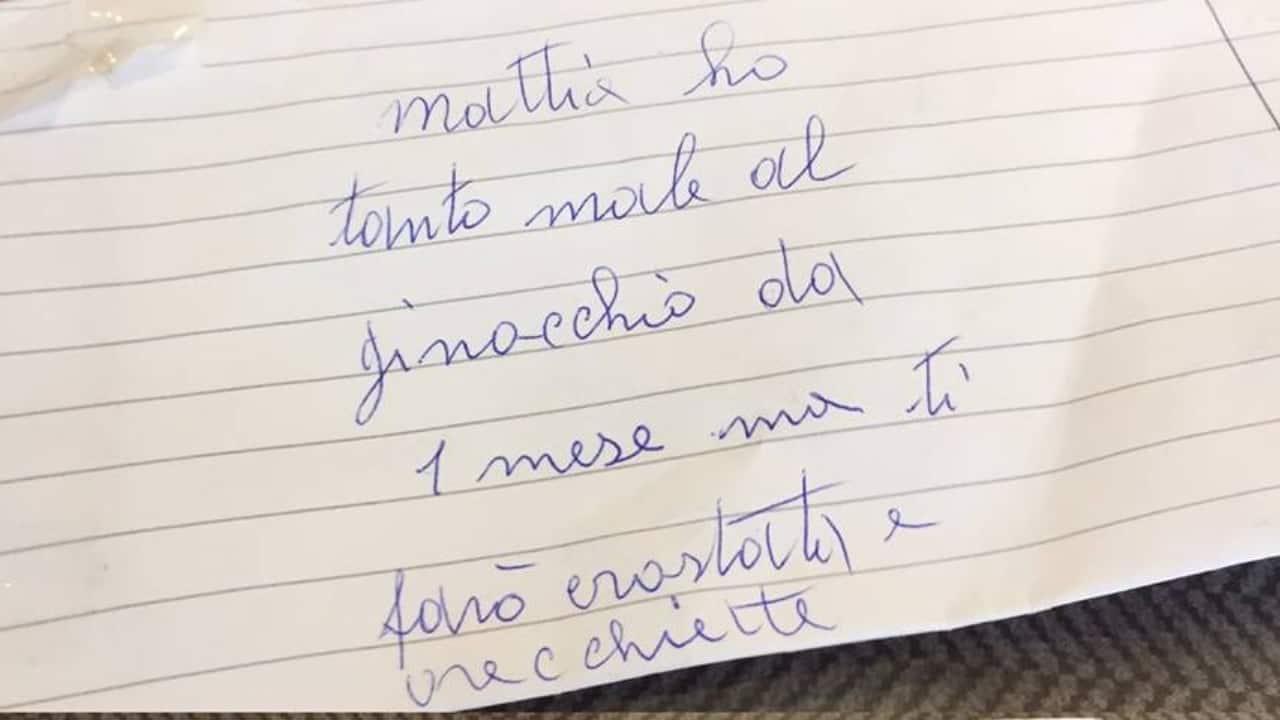 mattia ho
tanto male al
ginocchio da
1 mese ma ti
farò crostata e
orecchiette